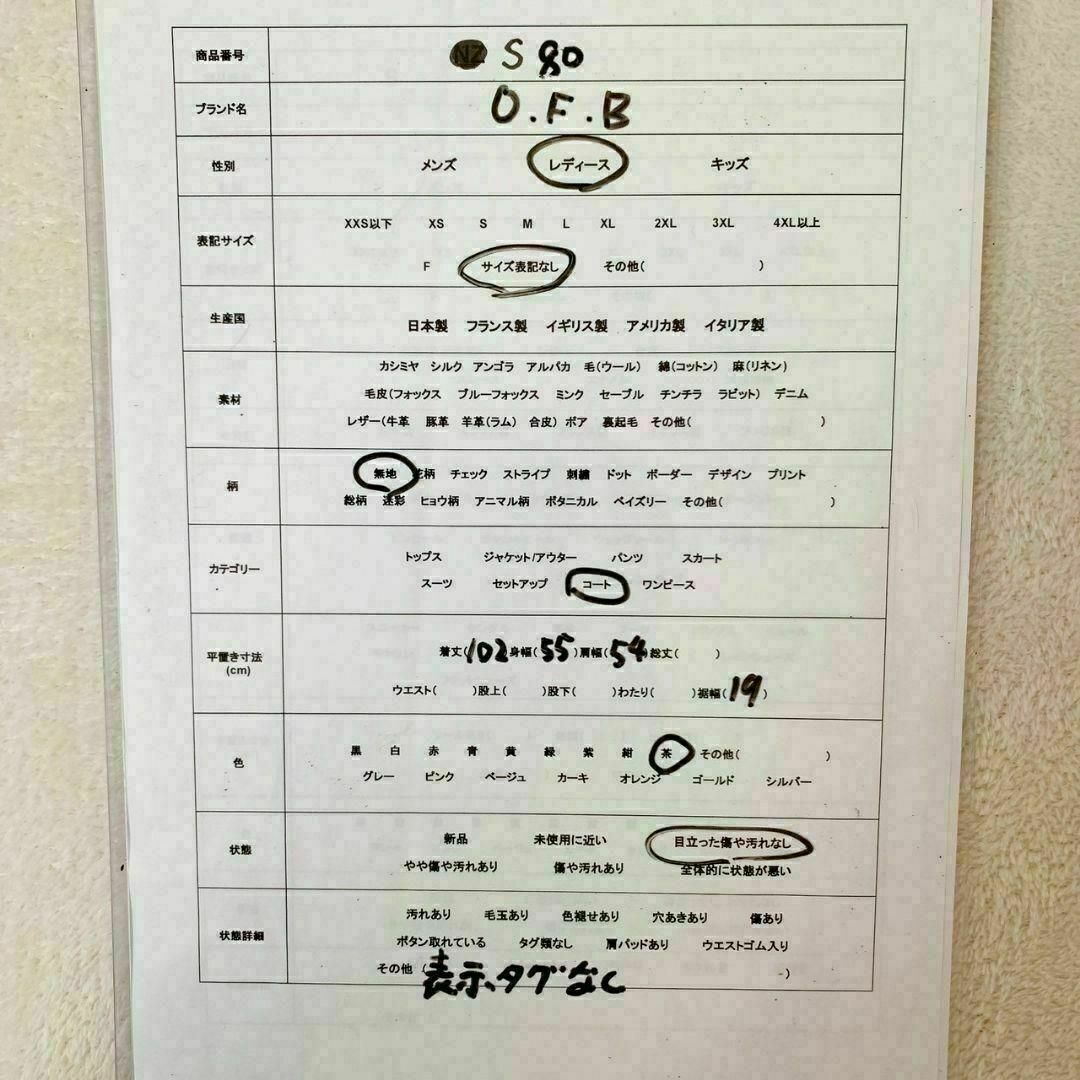 商品番号 NZ S 80
ブランド名 O.F.B
性別 メンズ レディース キッズ
表記サイズ
XXS以下 XS S M L XL 2XL 3XL 4XL以上
F サイズ表記なし その他( )
生産国 日本製 フランス製 イギリス製 アメリカ製 イタリア製
素材
カシミヤ シルク アンゴラ アルパカ 毛(ウール) 綿(コットン) 麻(リネン)
毛皮(フォックス ブルーフォックス ミンク セーブル チンチラ ラビット) デニム
レザー(牛革 豚革 羊革(ラム) 合皮) ボア 裏起毛 その他( )
柄
無地 花柄 チェック ストライプ 刺繍 ドット ボーダー デザイン プリント
総柄 迷彩 ヒョウ柄 アニマル柄 ボタニカル ペイズリー その他( )
カテゴリー
トップス ジャケット/アウター パンツ スカート
スーツ セットアップ コート ワンピース
平置き寸法
(cm)
着丈(102)身幅(55)肩幅(54)総丈( )
ウエスト( )股上( )股下( )わたり( )裾幅(19)
色
黒 白 赤 青 黄 緑 紫 紺 茶 その他( )
グレー ピンク ベージュ カーキ オレンジ ゴールド シルバー
状態
新品 未使用に近い 目立った傷や汚れなし
やや傷や汚れあり 傷や汚れあり 全体的に状態が悪い
状態詳細
汚れあり 毛玉あり 色褪せあり 穴あきあり 傷あり
ボタン取れている タグ類なし 肩パッドあり ウエストゴム入り
その他 (表示タグなし )